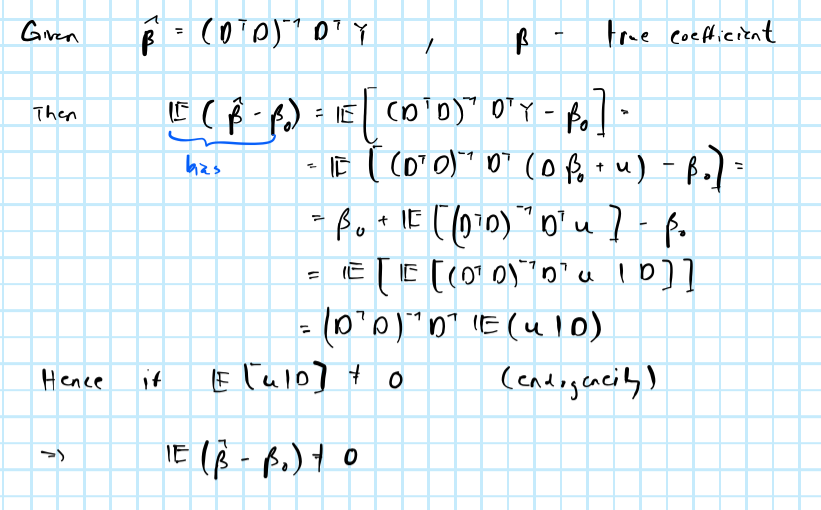 Given β̂ = (DᵀD)⁻¹ Dᵀ Y , β - true coefficient
Then 𝔼 ( β̂ - β₀) = 𝔼 [ (DᵀD)⁻¹ DᵀY - β₀ ] =
bias
= 𝔼 [ (DᵀD)⁻¹ Dᵀ (D β₀ + u) - β₀ ] =
= β₀ + 𝔼 [ (DᵀD)⁻¹ Dᵀ u ] - β₀
= 𝔼 [ 𝔼 [ (DᵀD)⁻¹ Dᵀ u | D ] ]
= (DᵀD)⁻¹ Dᵀ 𝔼 (u | D)
Hence if 𝔼 [u|D] ≠ 0 (endogeneity)
=> 𝔼 (β̂ - β₀) ≠ 0